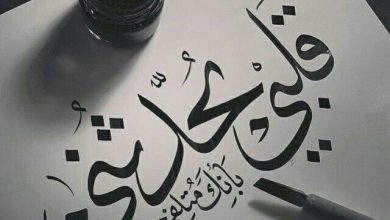 قلبي يُحدّثني
بأنك مُتلفي